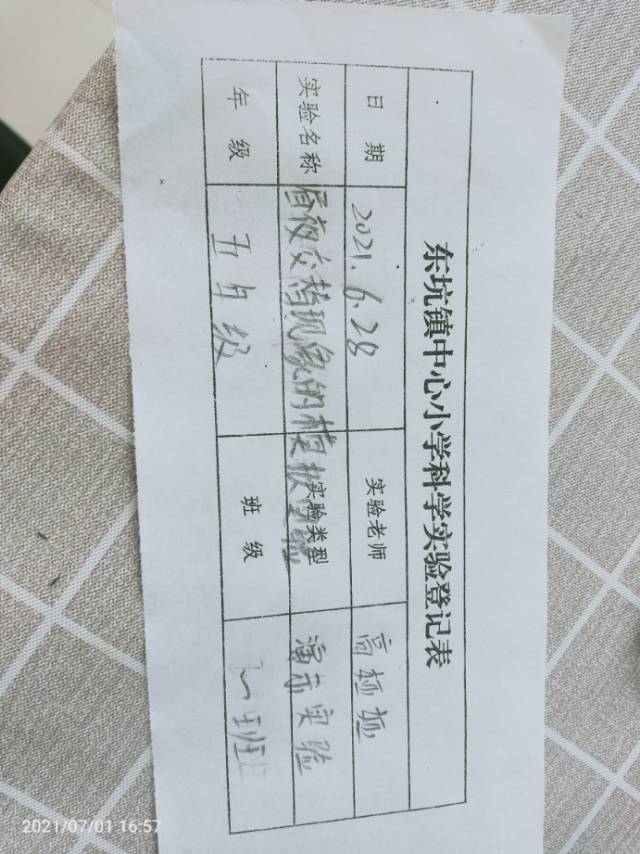 东坑镇中心小学科学实验登记表
日期 2021.6.28 实验老师
实验名称 昼夜交替现象的模拟实验 实验类型 演示实验
年级 五年级 班级
2021/07/01 16:57